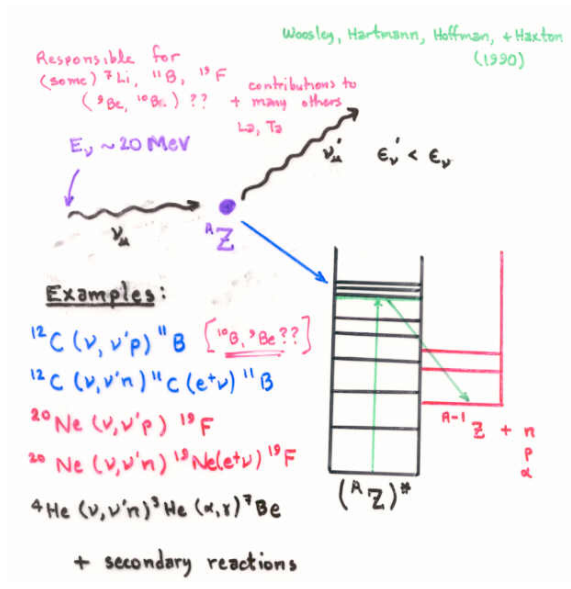 Woosley, Hartmann, Hoffman, + Haxton
(1990)
Responsible for
(some) ⁷Li, ¹¹B, ¹⁹F
(⁹Be, ¹⁰B) ??
contributions to
+ many others
La, Ta
E_ν ~ 20 MeV
ν_μ'
ϵ_ν' < ϵ_ν
ν_μ
ᴬZ
Examples:
¹²C (ν, ν'p) ¹¹B [¹⁰B, ⁹Be??]
¹²C (ν, ν'n) ¹¹C (e⁺ν) ¹¹B
²⁰Ne (ν, ν'p) ¹⁹F
²⁰Ne (ν, ν'n) ¹⁹Ne(e⁺ν) ¹⁹F
⁴He (ν, ν'n) ³He (α, γ) ⁷Be
+ secondary reactions
(ᴬZ)*
ᴬ⁻¹Z + n
p
α